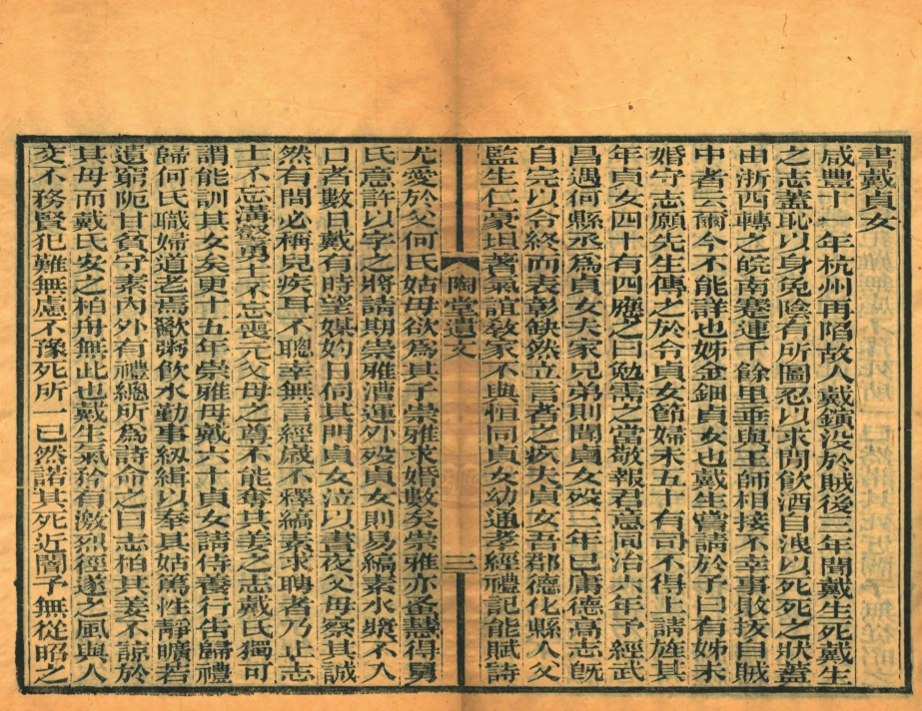 書戴貞女
咸豐十一年杭州再陷故人戴鎮沒於賊後三年聞戴生死戴生
之志蓋恥以身免陰有所圖忍以求閒飲酒自洩以死死之狀蓋
由浙西轉之皖南蹇連千餘里垂與王師相接不幸事敗抜自賊
中者云爾今不能詳也姊金鈿貞女也戴生嘗請於予曰有姊未
婚守志願先生傳之於令貞女節婦未五十有司不得上請旌其
年貞女四十有四應之曰勉需之當敬報君意同治六年予經武
昌遇何縣丞爲貞女夫家兄弟則聞貞女歿三年已庸德高志旣
自完以令終而表彰缺然立言者之疚夫貞女吾郡德化縣人父
監生仁豪坦著氣誼敎家不與恒同貞女幼通孝經禮記能賦詩
陶堂遺文
三
尤愛於父何氏姑母欲爲其子崇雅求婚數矣崇雅亦蚤慧得舅
氏意許以字之將請期崇雅漕運外歿貞女則易縞素水漿不入
口者數日戴有時望媒妁日伺其門貞女泣以晝夜父母察其誠
然有問必稱兒疾耳不聰幸無言經歲不釋縞素求聘者乃止志
士不忘溝壑勇士不忘喪元父母之尊不能奪其美之志戴氏獨可
謂能訓其女矣更十五年崇雅母戴六十貞女請侍養行告歸禮
歸何氏職婦道老焉歠粥飲水勤事紉緝以奉其姑篤性靜曠若
遺窮阨甘貧守素內外有禮總所爲詩命之曰志柏共姜不諒於
其母而戴氏安之柏舟無此也戴生氣矜有激烈徑遂之風與人
交不務賢犯難無慮不豫死所一已然諾其死近闇予無從昭之